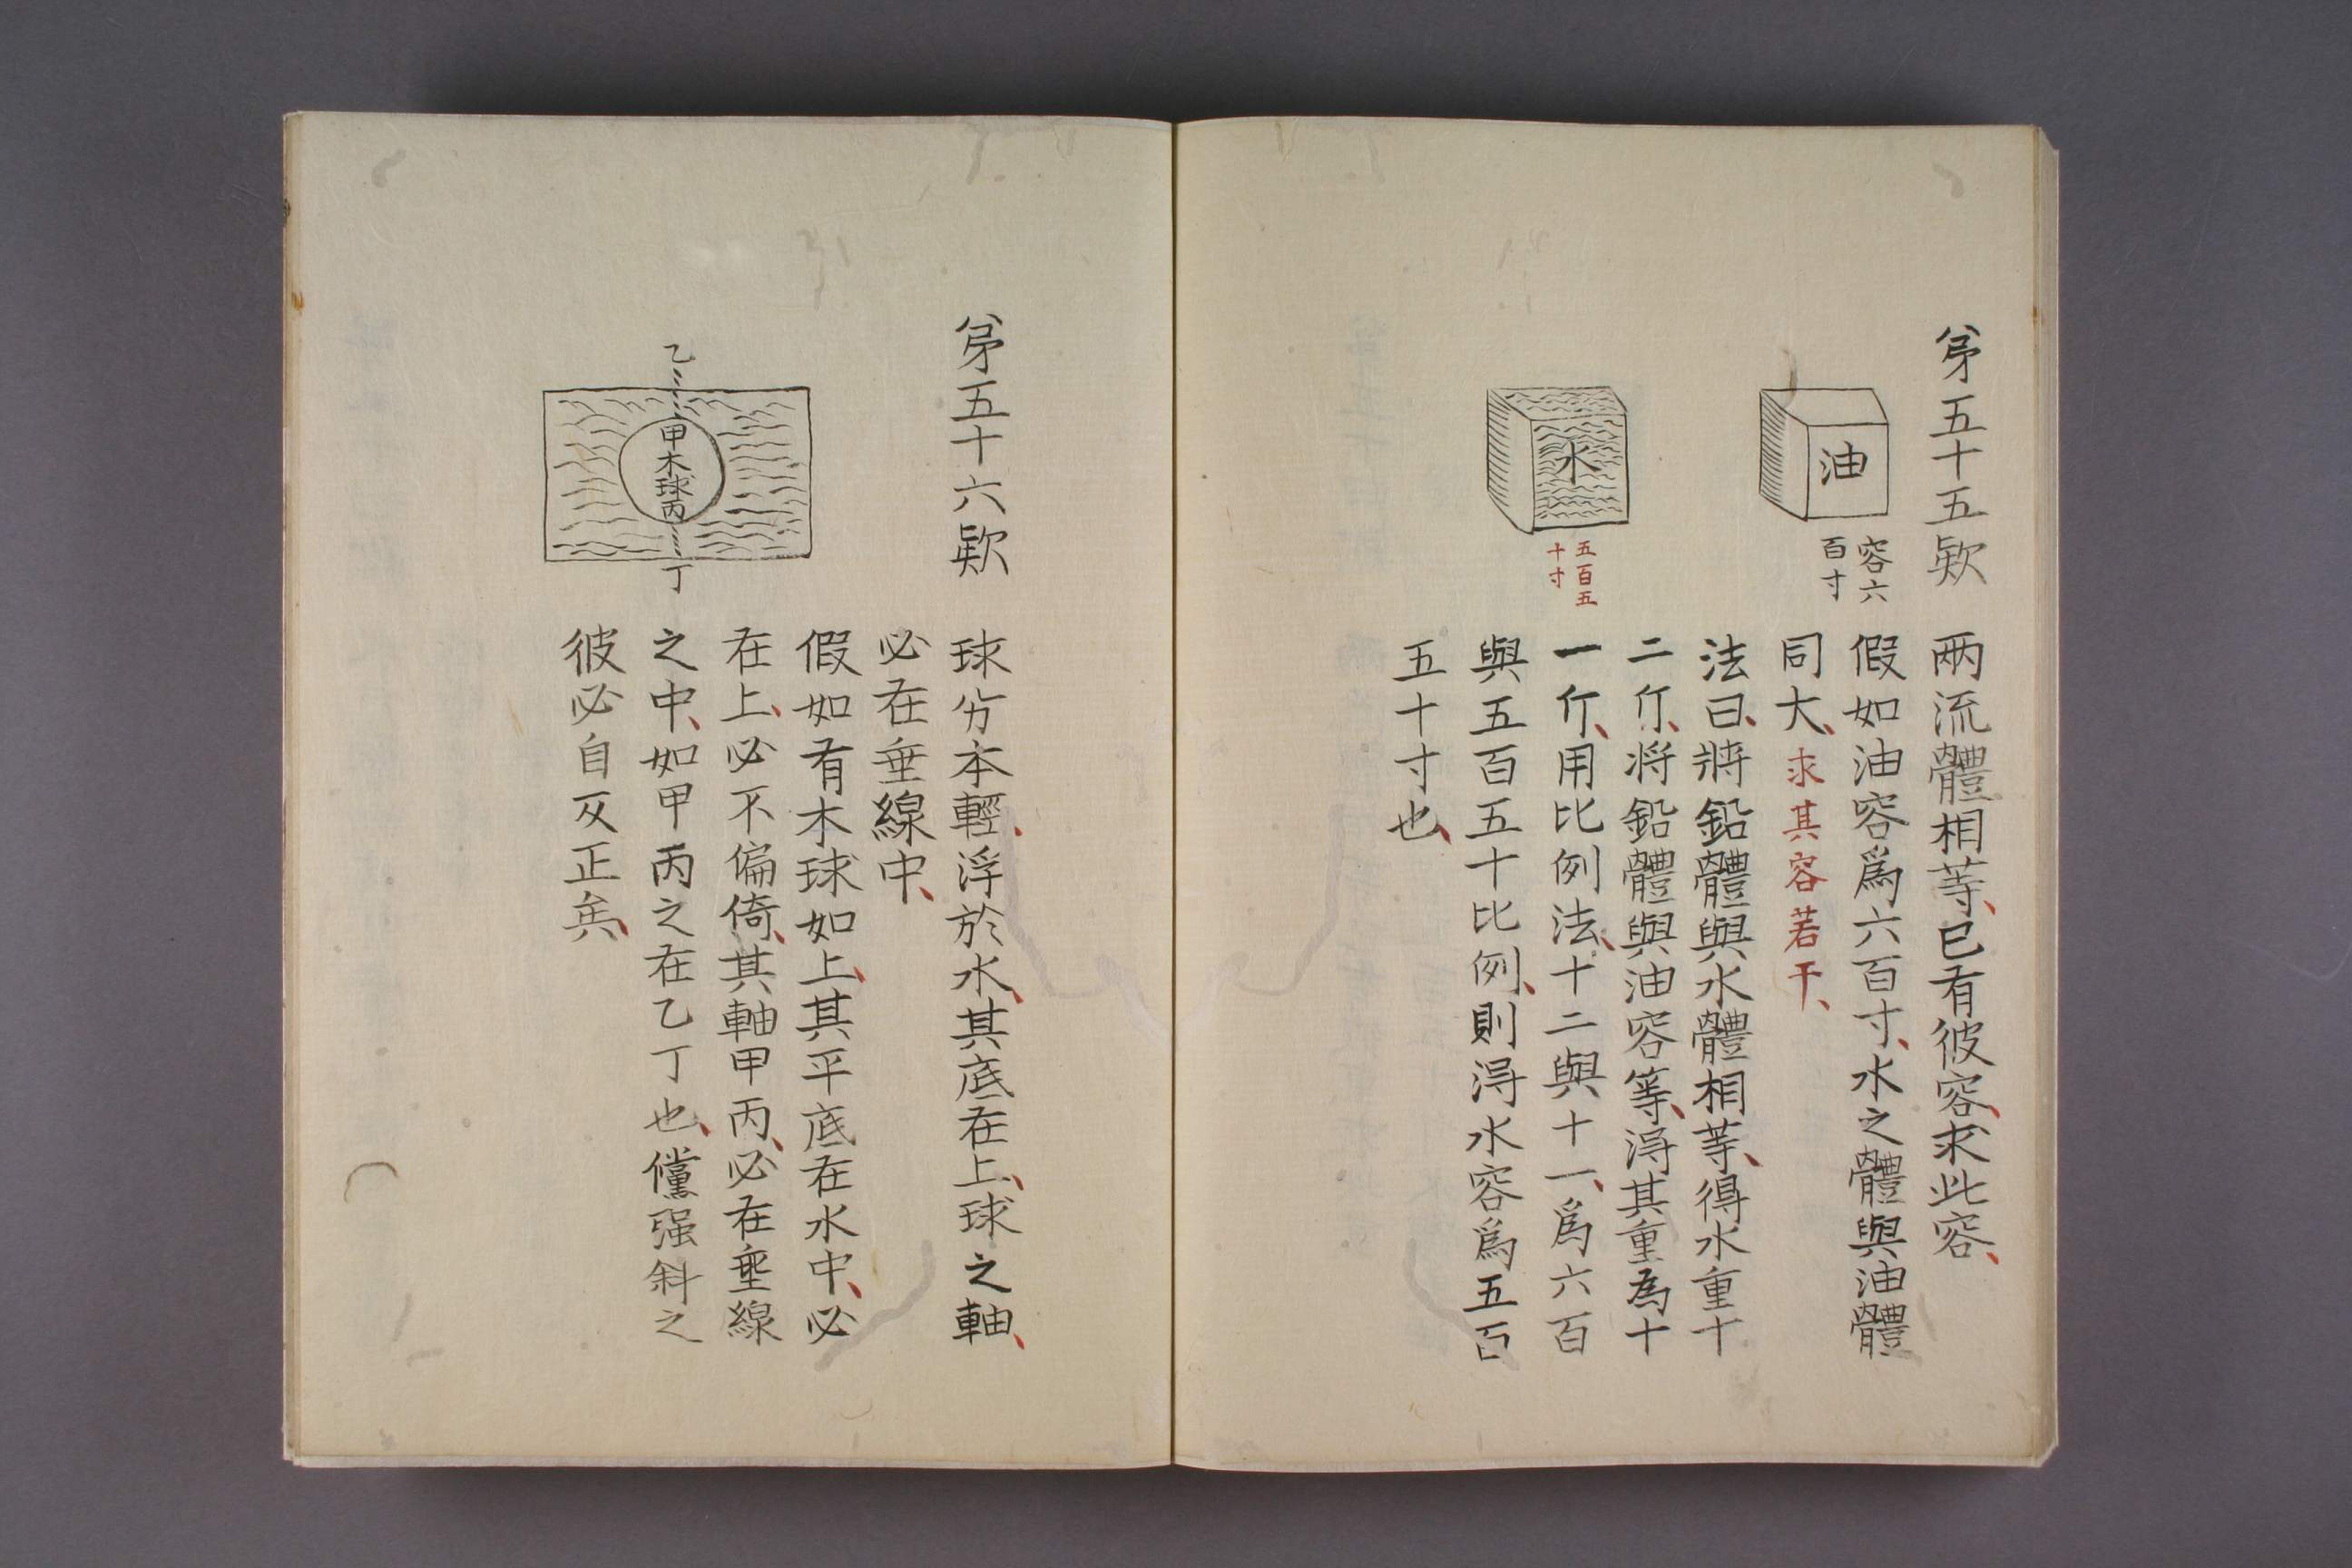 第五十五欵
兩流體相等、已有彼容、求此容、
假如油容爲六百寸、水之體與油體
同大、求其容若干、
法曰、將鉛體與水體相等、得水重十
二斤、将鉛體與油容等、淂其重為十
一斤、用比例法、十二與十一、爲六百
與五百五十比例、則淂水容爲五百
五十寸也、
油
容六
百寸
水
五百五
十寸
第五十六欵
球分本輕、浮於水、其底在上、球之軸、
必在垂線中、
假如有木球如上、其平底在水中、必
在上、必不偏倚、其軸甲丙、必在埀線
之中、如甲丙之在乙丁也、儻强斜之
彼必自反正矣、
乙
甲木球丙
丁